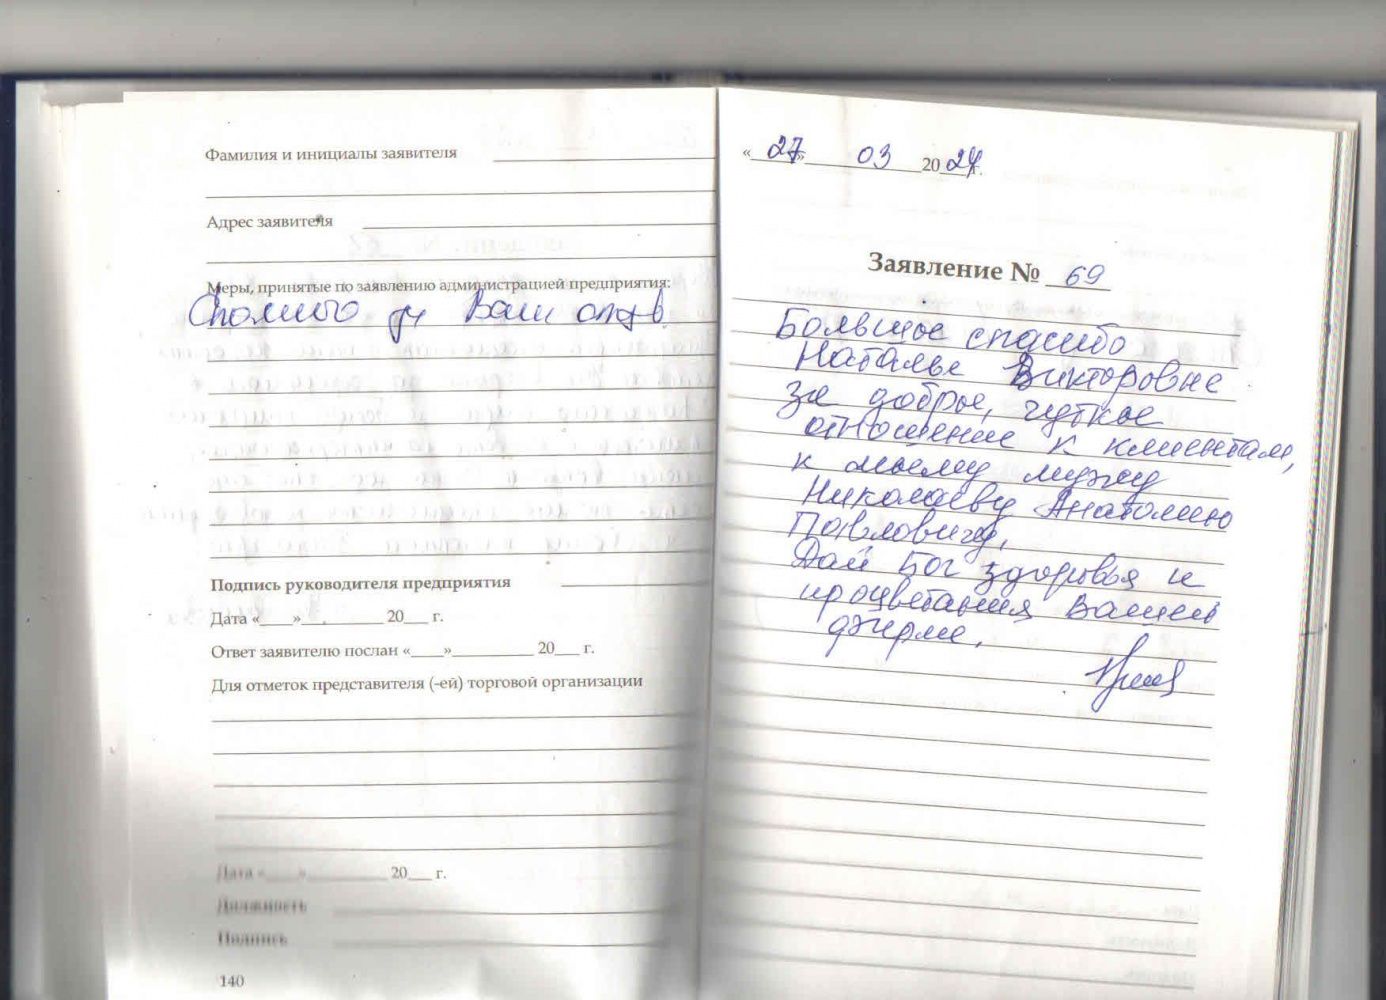 Фамилия и инициалы заявителя
Адрес заявителя
Меры, принятые по заявлению администрацией предприятия:
Спасибо за Ваш отзыв
Подпись руководителя предприятия
Дата «____»__________ 20___ г.
Ответ заявителю послан «____»__________ 20___ г.
Для отметок представителя (-ей) торговой организации
Дата «____»__________ 20___ г.
Должность
Подпись
140
«27» 03 2024 г.
Заявление № 69
Большое спасибо
Наталье Викторовне
за доброе, чуткое
отношение к клиентам,
к моему мужу
Николаеву Анатолию
Павловичу.
Дай Бог здоровья и
процветания Вашей
фирме.